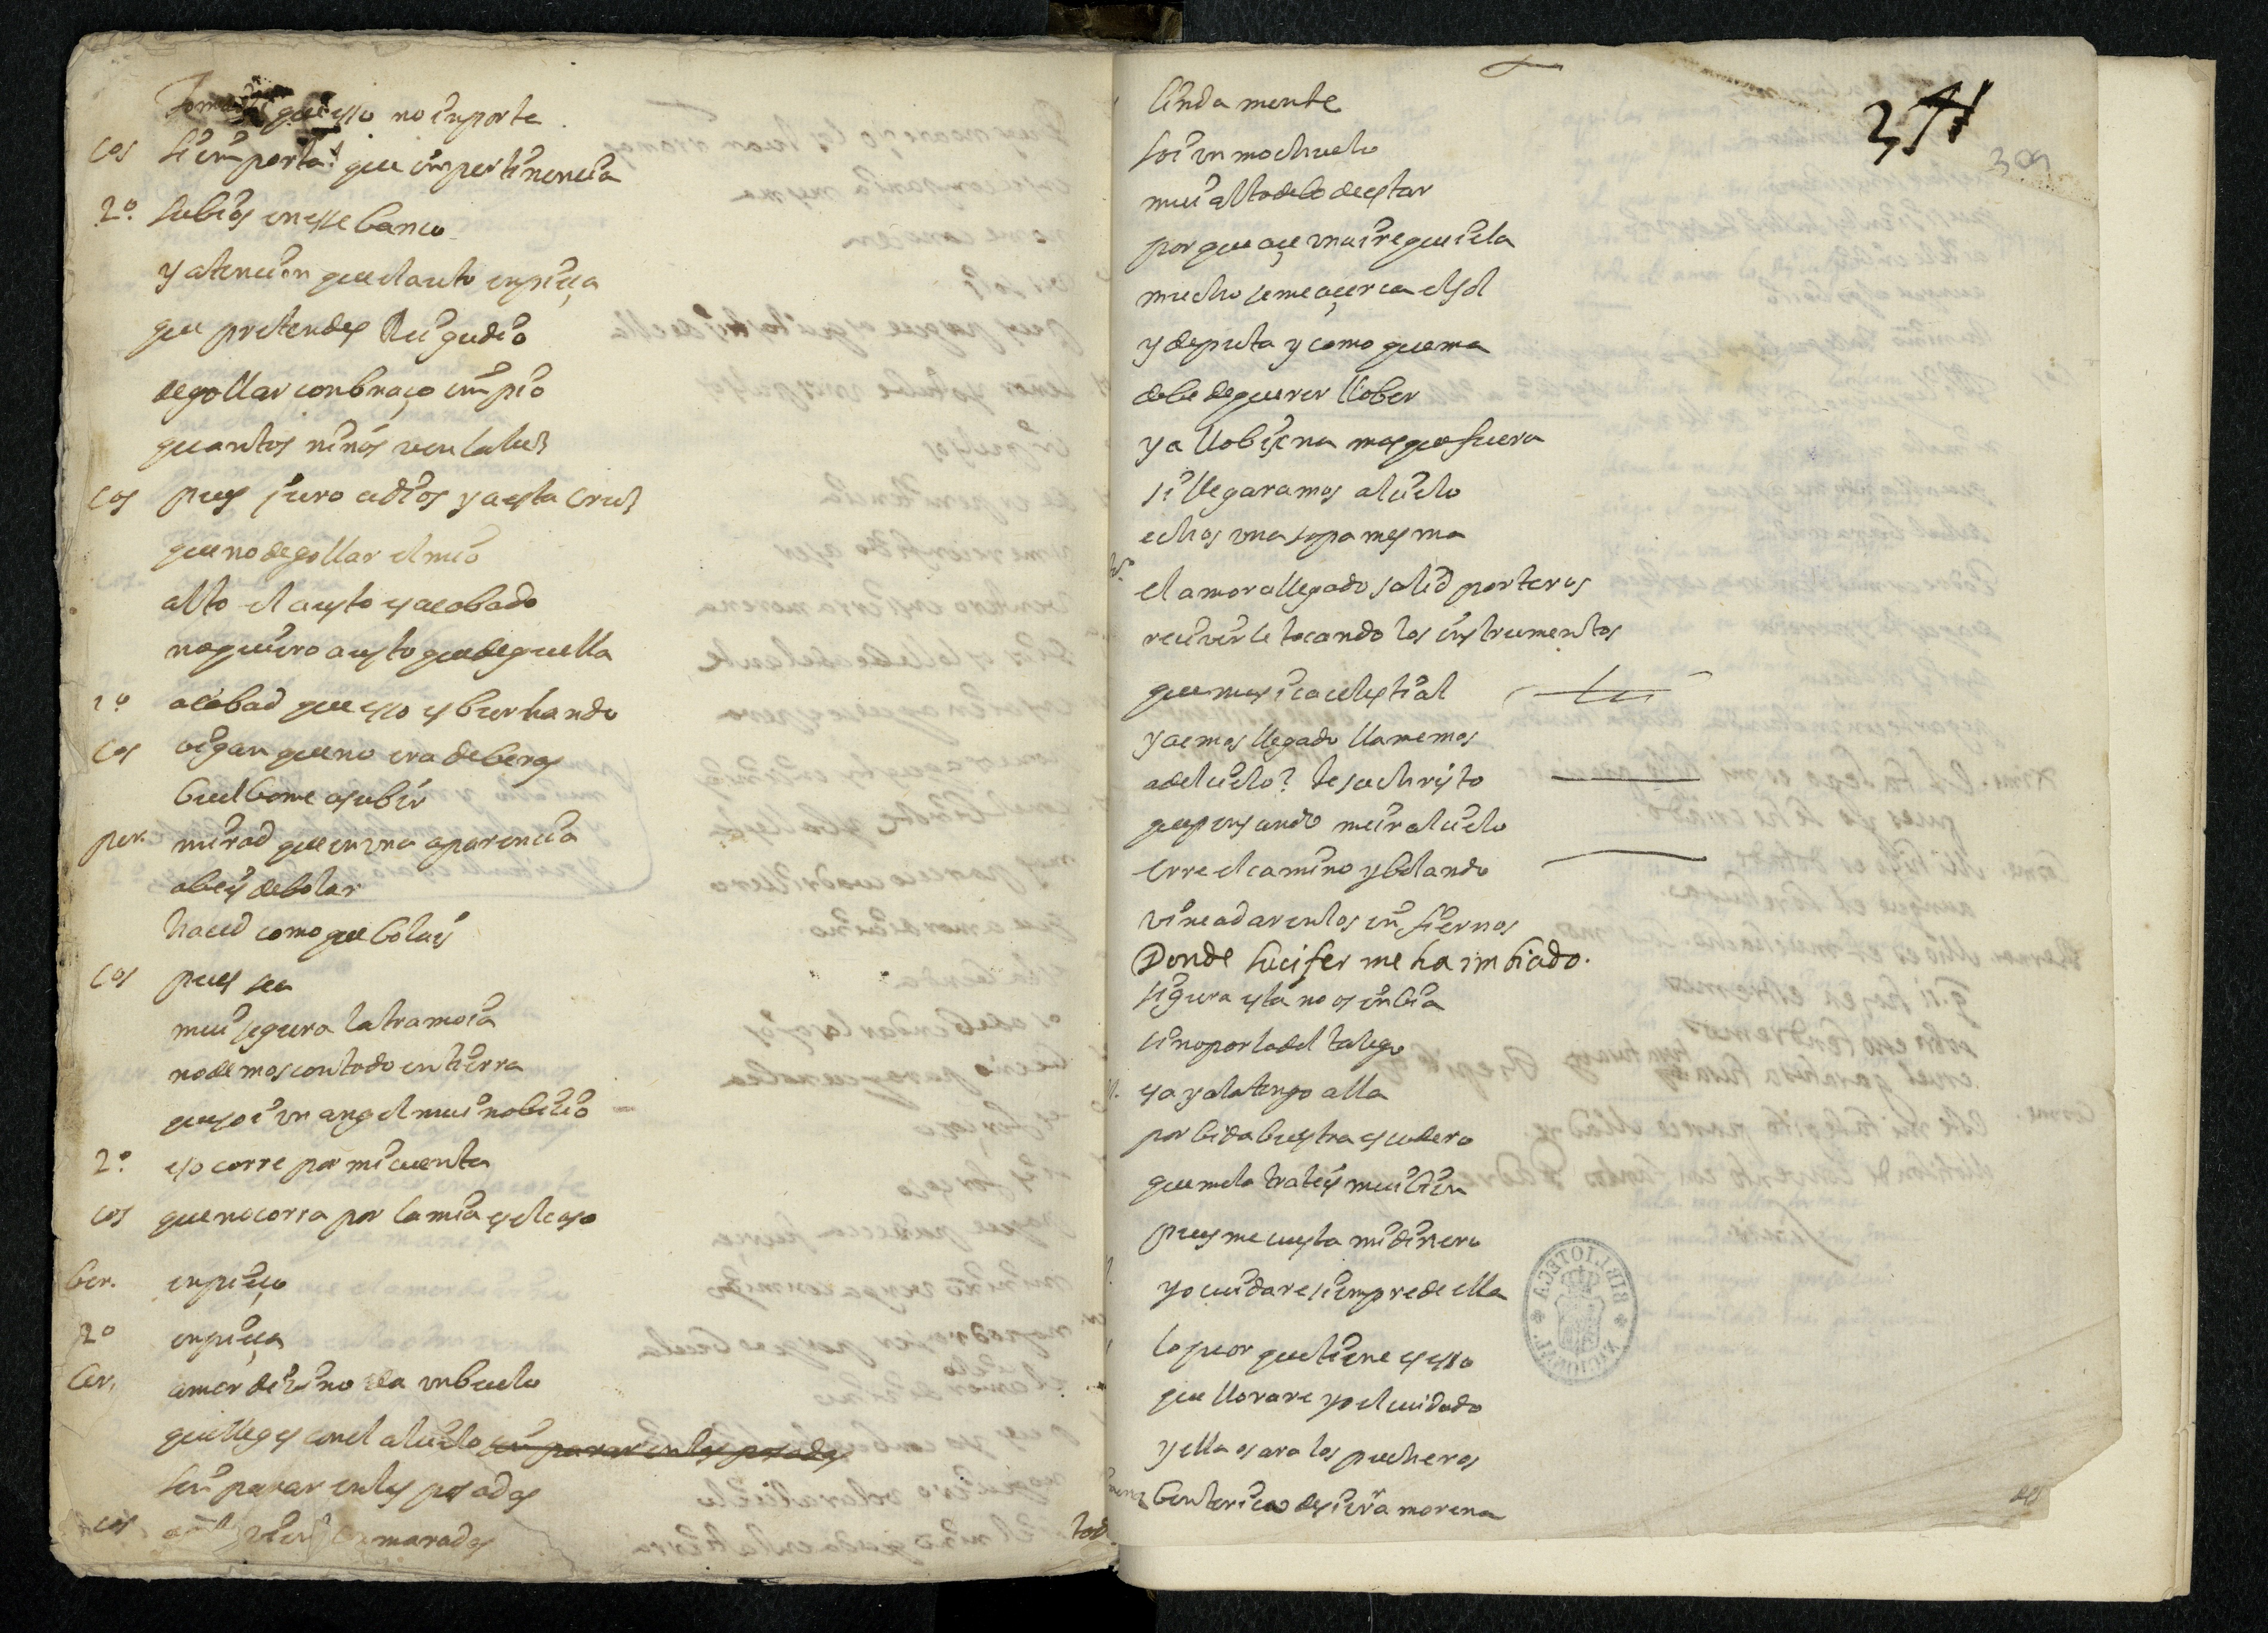 que esso no inporta
cos si inporta que inpertinencia
2º subios en esse banco
y atencion que el auto enpieça
que pretendes Rei gudio
degollar con braço inpio
quantos niños ven la luz
cos pues juro a dios y a esta cruz
que no degollar el mio
alto el austo es acabado
no quiero austo que deguella
2º acabad que esso es burlando
cos oigan que no era de beras
buelbome a subir
per. mirad que en una aparencia
abeis de bolar
haced como que bolais
cos pues sea
mui segura la tramoia
no demos con todo en tierra
que soi un angel mui nobicio
2º eso corre por mi cuenta
cos que no corra por la mia es el caso
ber. enpieço
2º enpieça
ber. amor divino da un buelo
que llegues con el al cielo sin parar en las posadas
sin parar en las posadas
cos camaradas
linda mente
soi un mochuelo
mui alto debo de estar
por que açe una sireguiela
mucho se me açerca el sol
y de puta y como quema
debe de querer llober
y a llobizna mas que fuera
si llegaramos al cielo
echos una sopa mesma
el amor a llegado salid porteros
recivirle tocando los instrumentos
que musica celestial
ya emos llegado llamemos
a del cielo? Jesuchristo
que pensando meir al cielo
erre el camino y bolando
vine a dar en los infiernos
Donde lucifer me ha imbiado.
sigura esta no os enbia
sino por la del talego
ea ya la tengo alla
por bida buestra escudero
que me la trateis mui bien
pues me cuesta mi dinero
yo cuidare siempre de ella
lo peor que tiene es esso
que llorare yo el cuidado
y ella os ara los pucheros
benterica de sierra morena
309
BIBLIOTECA NACIONAL